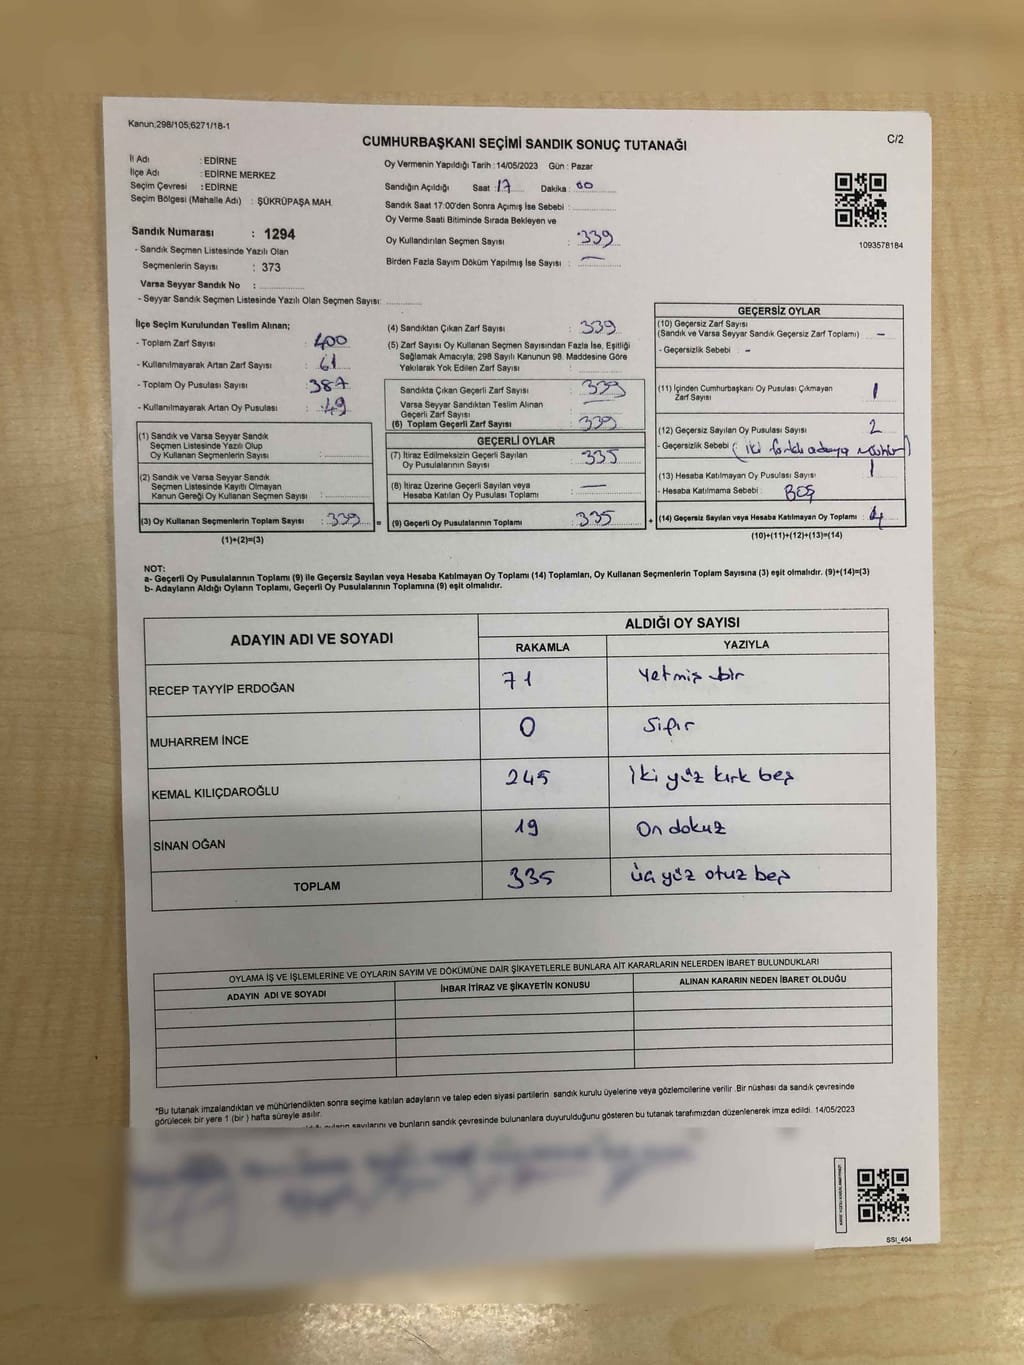 Kanun,298/105,6271/18-1
C/2
CUMHURBAŞKANI SEÇİMİ SANDIK SONUÇ TUTANAĞI
İl Adı : EDİRNE
İlçe Adı : EDİRNE MERKEZ
Seçim Çevresi : EDİRNE
Seçim Bölgesi (Mahalle Adı) : ŞÜKRÜPAŞA MAH.
Sandık Numarası : 1294
- Sandık Seçmen Listesinde Yazılı Olan
Seçmenlerin Sayısı : 373
Varsa Seyyar Sandık No :
- Seyyar Sandık Seçmen Listesinde Yazılı Olan Seçmen Sayısı:
Oy Vermenin Yapıldığı Tarih : 14/05/2023 Gün : Pazar
Sandığın Açıldığı Saat : 17 Dakika : 00
Sandık Saat 17:00'den Sonra Açımış İse Sebebi :
Oy Verme Saati Bitiminde Sırada Bekleyen ve
Oy Kullandırılan Seçmen Sayısı : 339
Birden Fazla Sayım Döküm Yapılmış İse Sayısı : —
1093578184
İlçe Seçim Kurulundan Teslim Alınan;
- Toplam Zarf Sayısı : 400
- Kullanılmayarak Artan Zarf Sayısı : 61
- Toplam Oy Pusulası Sayısı : 387
- Kullanılmayarak Artan Oy Pusulası : 49
(1) Sandık ve Varsa Seyyar Sandık
Seçmen Listesinde Yazılı Olup
Oy Kullanan Seçmenlerin Sayısı :
(2) Sandık ve Varsa Seyyar Sandık
Seçmen Listesinde Kayıtlı Olmayan
Kanun Gereği Oy Kullanan Seçmen Sayısı :
(3) Oy Kullanan Seçmenlerin Toplam Sayısı : 339 =
(1)+(2)=(3)
(4) Sandıktan Çıkan Zarf Sayısı : 339
(5) Zarf Sayısı Oy Kullanan Seçmen Sayısından Fazla İse, Eşitliği
Sağlamak Amacıyla, 298 Sayılı Kanunun 98. Maddesine Göre
Yakılarak Yok Edilen Zarf Sayısı :
Sandıkta Çıkan Geçerli Zarf Sayısı : 339
Varsa Seyyar Sandıktan Teslim Alınan
Geçerli Zarf Sayısı : —
(6) Toplam Geçerli Zarf Sayısı : 339
GEÇERLİ OYLAR
(7) İtiraz Edilmeksizin Geçerli Sayılan
Oy Pusulalarının Sayısı : 335
(8) İtiraz Üzerine Geçerli Sayılan veya
Hesaba Katılan Oy Pusulası Toplamı : —
(9) Geçerli Oy Pusulalarının Toplamı : 335 +
GEÇERSİZ OYLAR
(10) Geçersiz Zarf Sayısı
(Sandık ve Varsa Seyyar Sandık Geçersiz Zarf Toplamı) : —
- Geçersizlik Sebebi : -
(11) İçinden Cumhurbaşkanı Oy Pusulası Çıkmayan
Zarf Sayısı : 1
(12) Geçersiz Sayılan Oy Pusulası Sayısı : 2
- Geçersizlik Sebebi : (iki farklı adaya mühür)
(13) Hesaba Katılmayan Oy Pusulası Sayısı : 1
- Hesaba Katılmama Sebebi : BOŞ
(14) Geçersiz Sayılan veya Hesaba Katılmayan Oy Toplamı : 4
(10)+(11)+(12)+(13)=(14)
NOT:
a- Geçerli Oy Pusulalarının Toplamı (9) ile Geçersiz Sayılan veya Hesaba Katılmayan Oy Toplamı (14) Toplamları, Oy Kullanan Seçmenlerin Toplam Sayısına (3) eşit olmalıdır. (9)+(14)=(3)
b- Adayların Aldığı Oyların Toplamı, Geçerli Oy Pusulalarının Toplamına (9) eşit olmalıdır.
ADAYIN ADI VE SOYADI
ALDIĞI OY SAYISI
RAKAMLA YAZIYLA
RECEP TAYYİP ERDOĞAN 71 Yetmiş bir
MUHARREM İNCE 0 Sıfır
KEMAL KILIÇDAROĞLU 245 İki yüz kırk beş
SİNAN OĞAN 19 On dokuz
TOPLAM 335 üç yüz otuz beş
OYLAMA İŞ VE İŞLEMLERİNE VE OYLARIN SAYIM VE DÖKÜMÜNE DAİR ŞİKAYETLERLE BUNLARA AİT KARARLARIN NELERDEN İBARET BULUNDUKLARI
ADAYIN ADI VE SOYADI İHBAR İTİRAZ VE ŞİKAYETİN KONUSU ALINAN KARARIN NEDEN İBARET OLDUĞU
*Bu tutanak imzalandıktan ve mühürlendikten sonra seçime katılan adayların ve talep eden siyasi partilerin sandık kurulu üyelerine veya gözlemcilerine verilir .Bir nüshası da sandık çevresinde
görülecek bir yere 1 (bir ) hafta süreyle asılır.
sayılarını ve bunların sandık çevresinde bulunanlara duyurulduğunu gösteren bu tutanak tarafımızdan düzenlenerek imza edildi. 14/05/2023
SSI_404